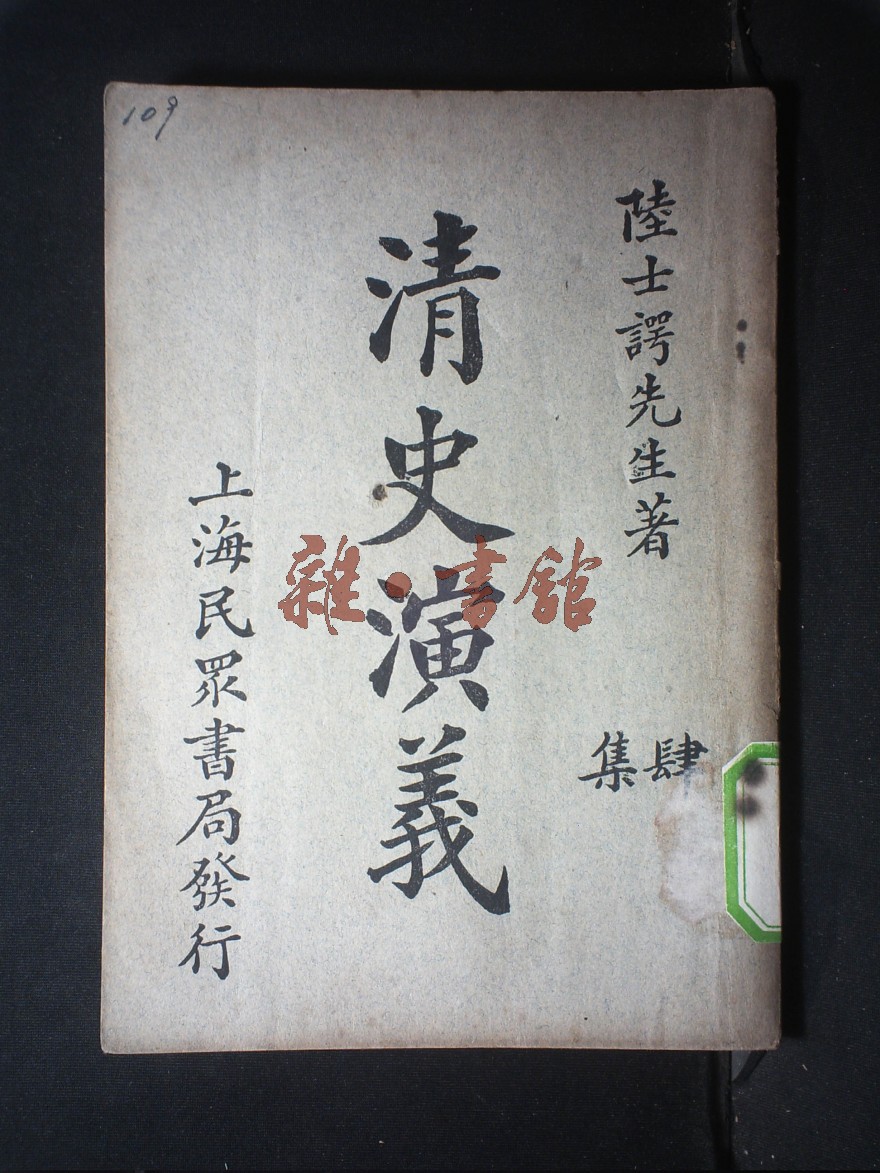 109
陸士諤先生著
肆集
清史演義
上海民眾書局發行
雜·書館